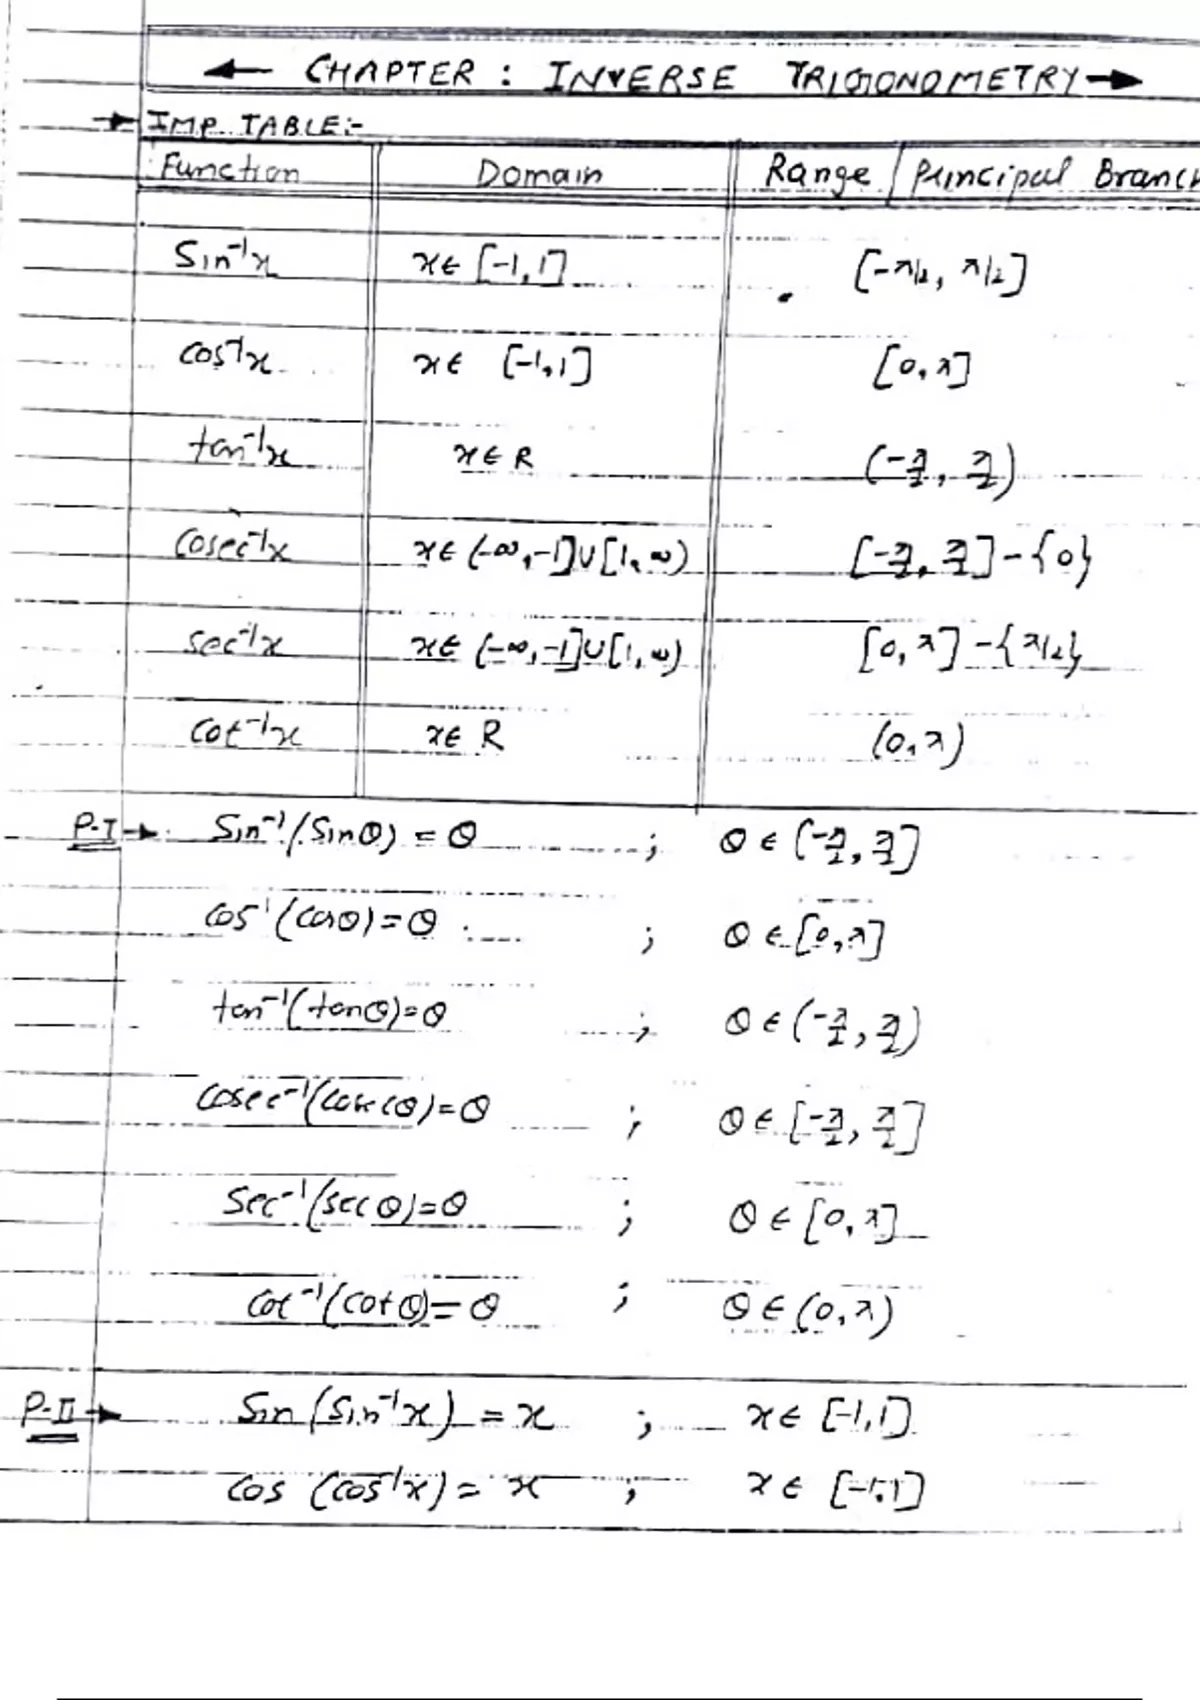 ← CHAPTER : INVERSE TRIGONOMETRY →
→ IMP. TABLE:-
Function Domain Range / Principal Branch
Sin⁻¹x x∈ [-1,1] [-π/2, π/2]
cos⁻¹x x∈ [-1,1] [0,π]
tan⁻¹x x∈R (-π/2, π/2)
Cosec⁻¹x x∈(-∞,-1]∪[1,∞) [-π/2, π/2]-{0}
sec⁻¹x x∈ (-∞,-1]∪[1,∞) [0,π]-{π/2}
cot⁻¹x x∈ R (0,π)
P-I → Sin⁻¹(Sinθ) = θ ; θ ∈ [-π/2, π/2]
cos⁻¹(cosθ)=θ ; θ ∈ [0,π]
tan⁻¹(tanθ)=θ ; θ ∈ (-π/2, π/2)
Cosec⁻¹(cosecθ)=θ ; θ ∈ [-π/2, π/2]
Sec⁻¹(secθ)=θ ; θ ∈ [0,π]
Cot⁻¹(cotθ)=θ ; θ ∈ (0,π)
P-II → Sin(Sin⁻¹x) = x ; x∈ [-1,1]
cos (cos⁻¹x) = x ; x∈ [-1,1]